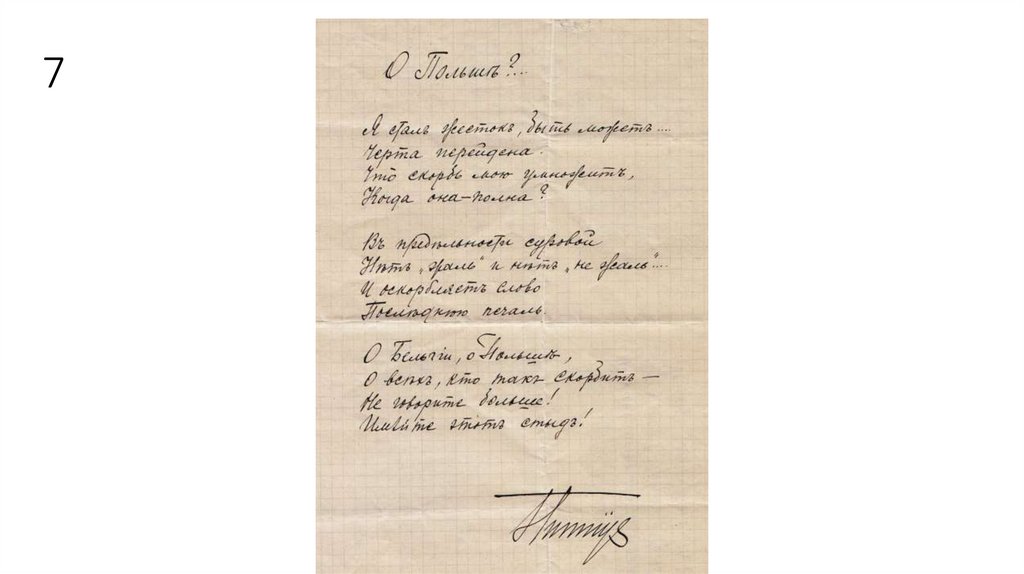 7
О Польшѣ?...
Я сталъ жестокъ, быть можетъ....
Черта перейдена.
Что скорбь мою умножитъ,
Когда она – полна?
Въ предѣльности суровой
Нѣтъ „жаль“ и нѣтъ „не жаль“....
И оскорбляетъ слово
Послѣднюю печаль.
О Бельгіи, о Польшѣ,
О всѣхъ, кто такъ скорбитъ –
Не говорите больше!
Имѣйте этотъ стыдъ!